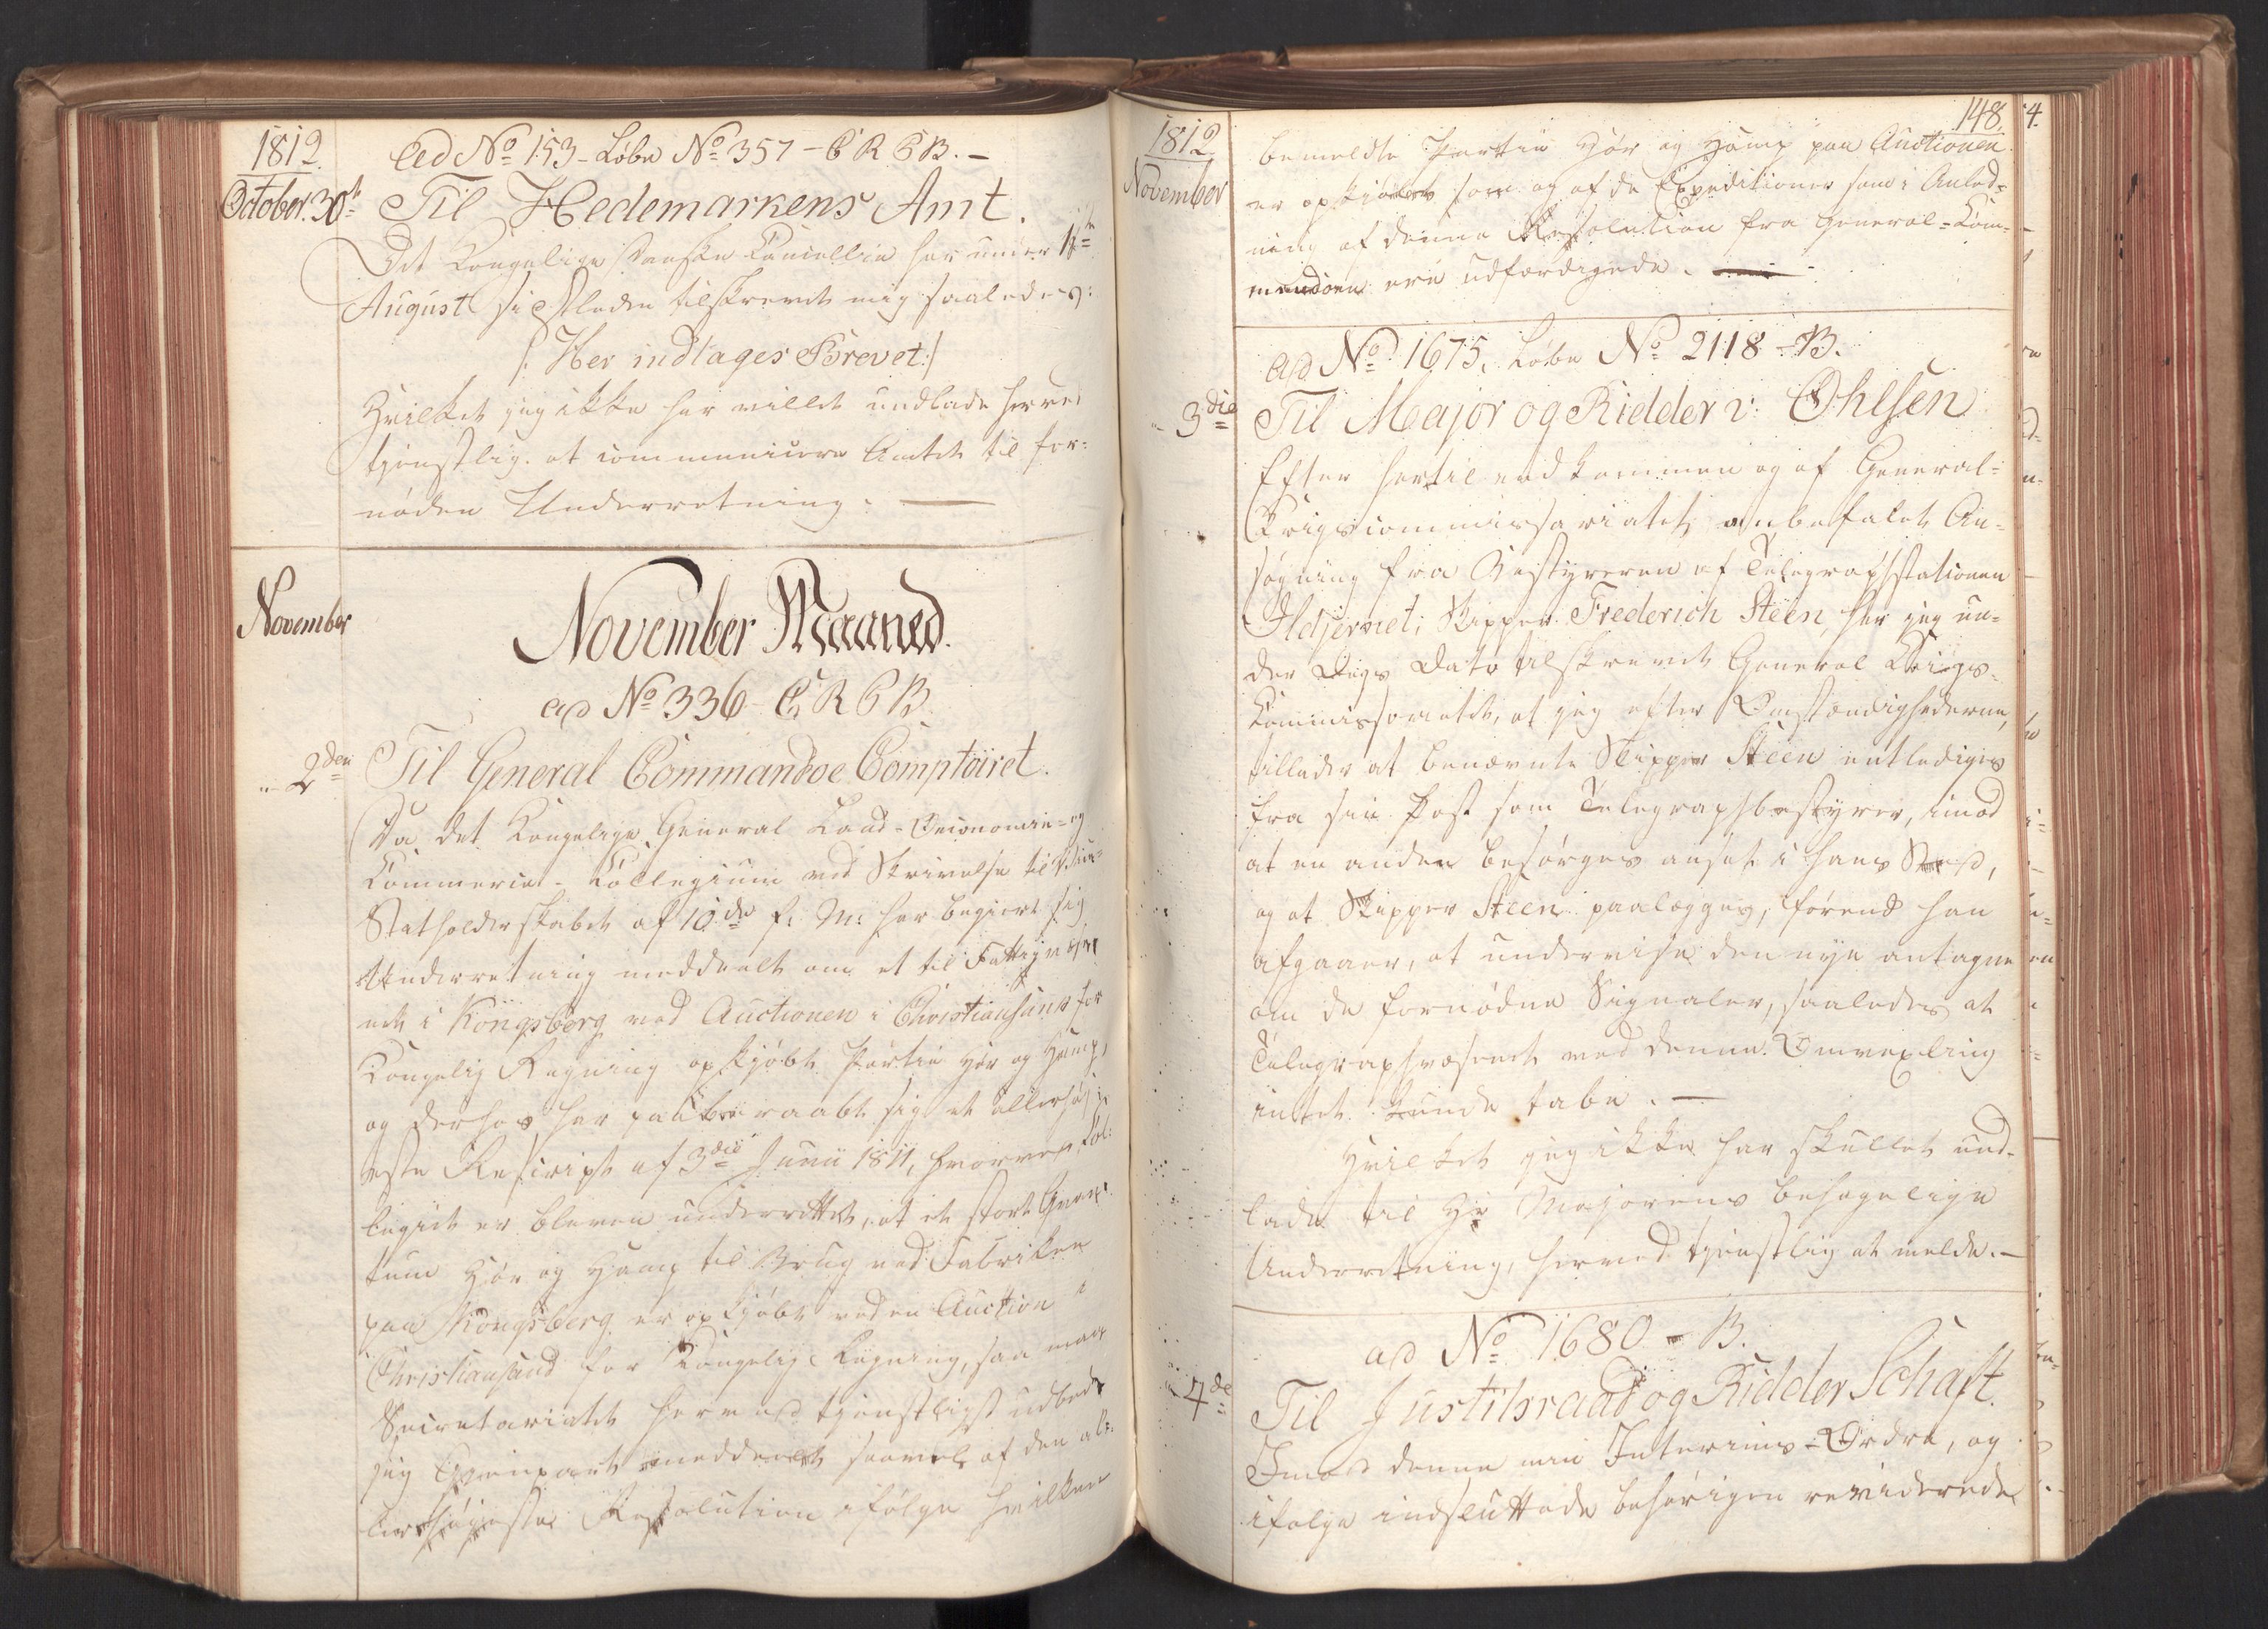 1812.
October. 30te
Ad No 153 - Løbe No 357 - C R C B. -
Til Hedemarkens Amt.
Det Kongelige Danske Cancellie har under 11te
August sidstleden tilskrevet mig saaledes:
/: Her indtages Brevet :/
Hvilket jeg ikke har villet undlade herved
tjenstlig at communicere Amtet til for=
nøden Underretning. —
November
November Maaned.
ad No 336 - C R C B.
" 2den
Til General Commandoe Comptoiret.
Da det Kongelige General Land-Oeconomie- og
Commerce-Collegium ved Skrivelse til Vice-
Statholderskabet af 10de f: M: har begjert sig
Underretning meddeelt om et til Fattigvæse-
net i Kongsberg ved Auctionen i Christiansand for
Kongelig Regning opkjøbt Partie Hør og Hamp,
og derhos har paaberaabt sig et allerhøi-
este Rescript af 3die Junii 1811, hvorved Col-
legiet er bleven underrettet, at et stort Qvan-
tum Hør og Hamp til Brug ved Fabriken
paa Kongsberg er opkjøbt ved en Auction i
Christiansand for Kongelig Regning, saa maa
Secretariatet herved tjenstligst udbede
sig Gjenpart meddeelt saavel af den al=
lerhøieste Resolution ifølge hvilken
1812
November
148.
bemeldte Partie Hør og Hamp paa Auctionen
er opkjøbt som og af de Expeditioner som i Anled=
ning af denne Resolution fra General-Com=
mandoen ere udfærdigede. —
ad No 1675, Løbe No 2118 - B.
" 3die
Til Major og Ridder v: Ohlsen
Efter hertil indkommen og af General=
Krigscommissariatet anbefalet An=
søgning fra Bestyreren af Telegraphstationen
Ildjernet, Skipper Frederich Steen, har jeg un=
der Dags Dato tilskrevet General Krigs=
Commissariatet, at jeg efter Omstændighederne,
tillader at benævnte Skipper Steen entlediges
fra sin Post som Telegraphbestyrer, imod
at en anden besørges ansat i hans Sted,
og at Skipper Steen paalægges, førend han
afgaaer, at undervise den nye antagne
om de fornødne Signaler, saaledes at
Telegraphvæsenet ved denne Omvexling
intet kunde tabe. —
Hvilket jeg ikke har skullet und=
lade til Hr Majorens behagelige
Underretning, herved tjenstlig at melde. —
ad No 1680 - B.
" 4de
Til Justitsraad og Ridder Schaft.
Imod denne min Interims-Ordre, og
ifølge indsluttede behørigen reviderede